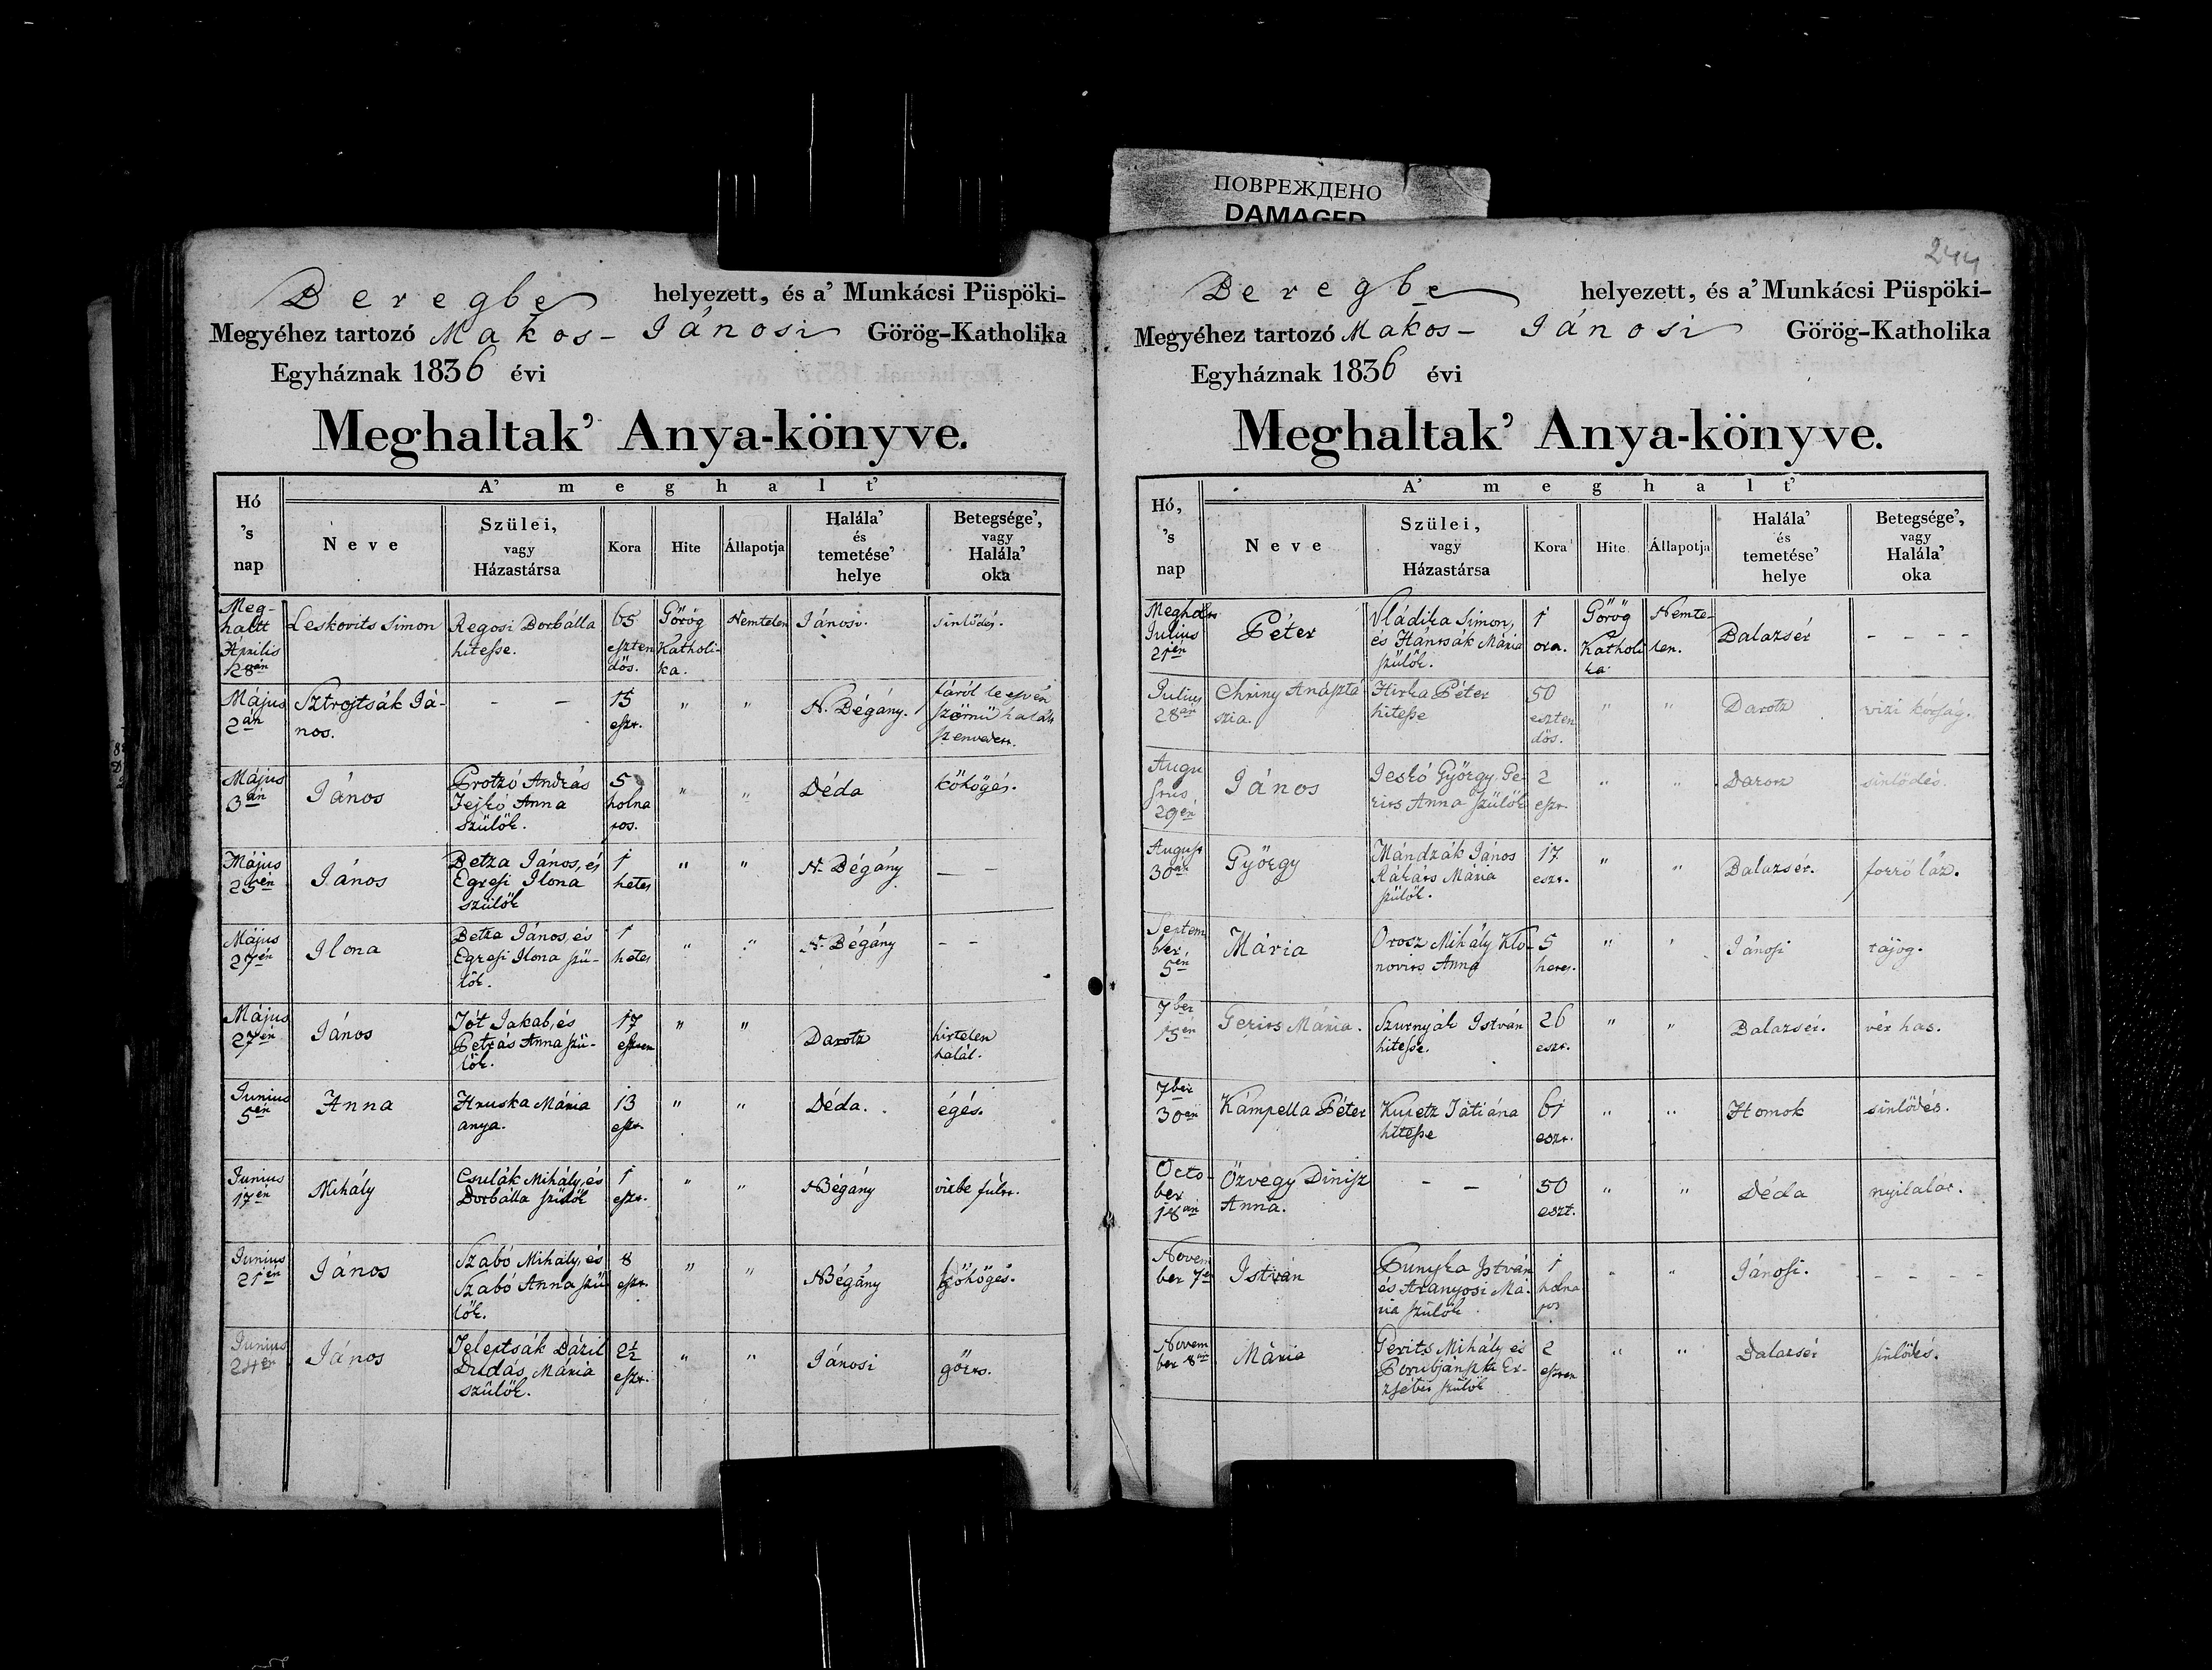 ПОВРЕЖДЕНО
DAMAGED
244
Beregbe helyezett, és a' Munkácsi Püspöki-
Megyéhez tartozó Makos-Jánosi Görög-Katholika
Egyháznak 1836 évi
Meghaltak' Anya-könyve.
A' meghalt'
Hó 's nap
Neve
Szülei, vagy Házastársa
Kora
Hite
Állapotja
Halála' és temetése' helye
Betegsége', vagy Halála' oka
Meg-
haltt
Április
28án
Leskovits Simon
Regosi Borbálla
hitesse.
65
eszten
dös.
Görög
Katholi-
ka.
Nemtelen
Jánosi.
sinlődés.
Május
2án
Sztrojtsák Já-
nos.
- -
15
eszt.
"
"
N. Bégány.
fáról le esvén
szörnü halált
szenvedett.
Május
3án
János
Protzó András
Jejkó Anna
szülők.
5
holna
pos.
"
"
Déda
köhögés.
Május
25én
János
Betza János, és
Egresi Ilona
szülők
1
hetes
"
"
N. Bégány
- -
Május
27én
Ilona
Betza János, és
Egresi Ilona szü-
lők.
1
hetes
"
"
N. Bégány
- -
Május
27én
János
Tót Jakab, és
Petrás Anna szü-
lők.
17
eszten
"
"
Darotz
hirtelen
halál.
Junius
5én
Anna
Hruska Mária
anya.
13
eszt.
"
"
Déda.
égés.
Junius
17én
Mihály
Csulák Mihály, és
Borbálla szülők
1
eszt.
"
"
N Bégány
vizbe fúlt.
Junius
21én
János
Szabó Mihály, és
Szabó Anna szü
lők.
8
eszt.
"
"
N Bégány
köhögés.
Junius
24én
János
Dudás Mária
szülők.
2½
eszt.
"
"
Jánosi
görts.
Beregbe helyezett, és a' Munkácsi Püspöki-
Megyéhez tartozó Makos-Jánosi Görög-Katholika
Egyháznak 1836 évi
Meghaltak' Anya-könyve.
A' meghalt'
Hó, 's nap
Neve
Szülei, vagy Házastársa
Kora
Hite
Állapotja
Halála' és temetése' helye
Betegsége', vagy Halála' oka
Meghaltt
Julius
21én
Péter
Vládika Simon,
és Hántsák Mária
szülők.
1
ora.
Görög
Katholi
ka
Nemte-
len.
Balazsér
- - - -
Julius
28án
Chriny Anászta
szia.
Hirka Péter
hitesse
50
eszten
dös.
"
"
Darotz
vizi kórság.
Augu
stus
29én
János
Jeskó György, Ge
rits Anna szülők
2
eszt.
"
"
Darotz
sinlődés.
August
30án
György
Mándzák János
Mária
szülők.
17
eszt.
"
"
Balazsér.
forró láz.
Septem
ber
5én
Mária
Orosz Mihály, Klo-
novits Anna
5
hetes.
"
"
Jánosi
rájog.
7ber
15én
Gerits Mária.
Szurnyák István
hitesse.
26
eszt.
"
"
Balazsér.
vér has.
7ber
30án
Kámpella Péter
Kuretz Játiána
hitesse
61
eszt.
"
"
Homok
sinlődés.
Octo-
ber
18án
Özvégy Dinisz
Anna.
- -
50
eszt.
"
"
Déda
nyilalás.
Novem
ber 7én
István
Punyka István
és Aranyosi Má-
ria szülők
1
holna
pos
"
"
Jánosi.
- - - -
Novem
ber 8án
Mária
Gerits Mihály és
Porubjánszki Er-
zsébet szülők
2
eszten
"
"
Balazsér
sinlődés.